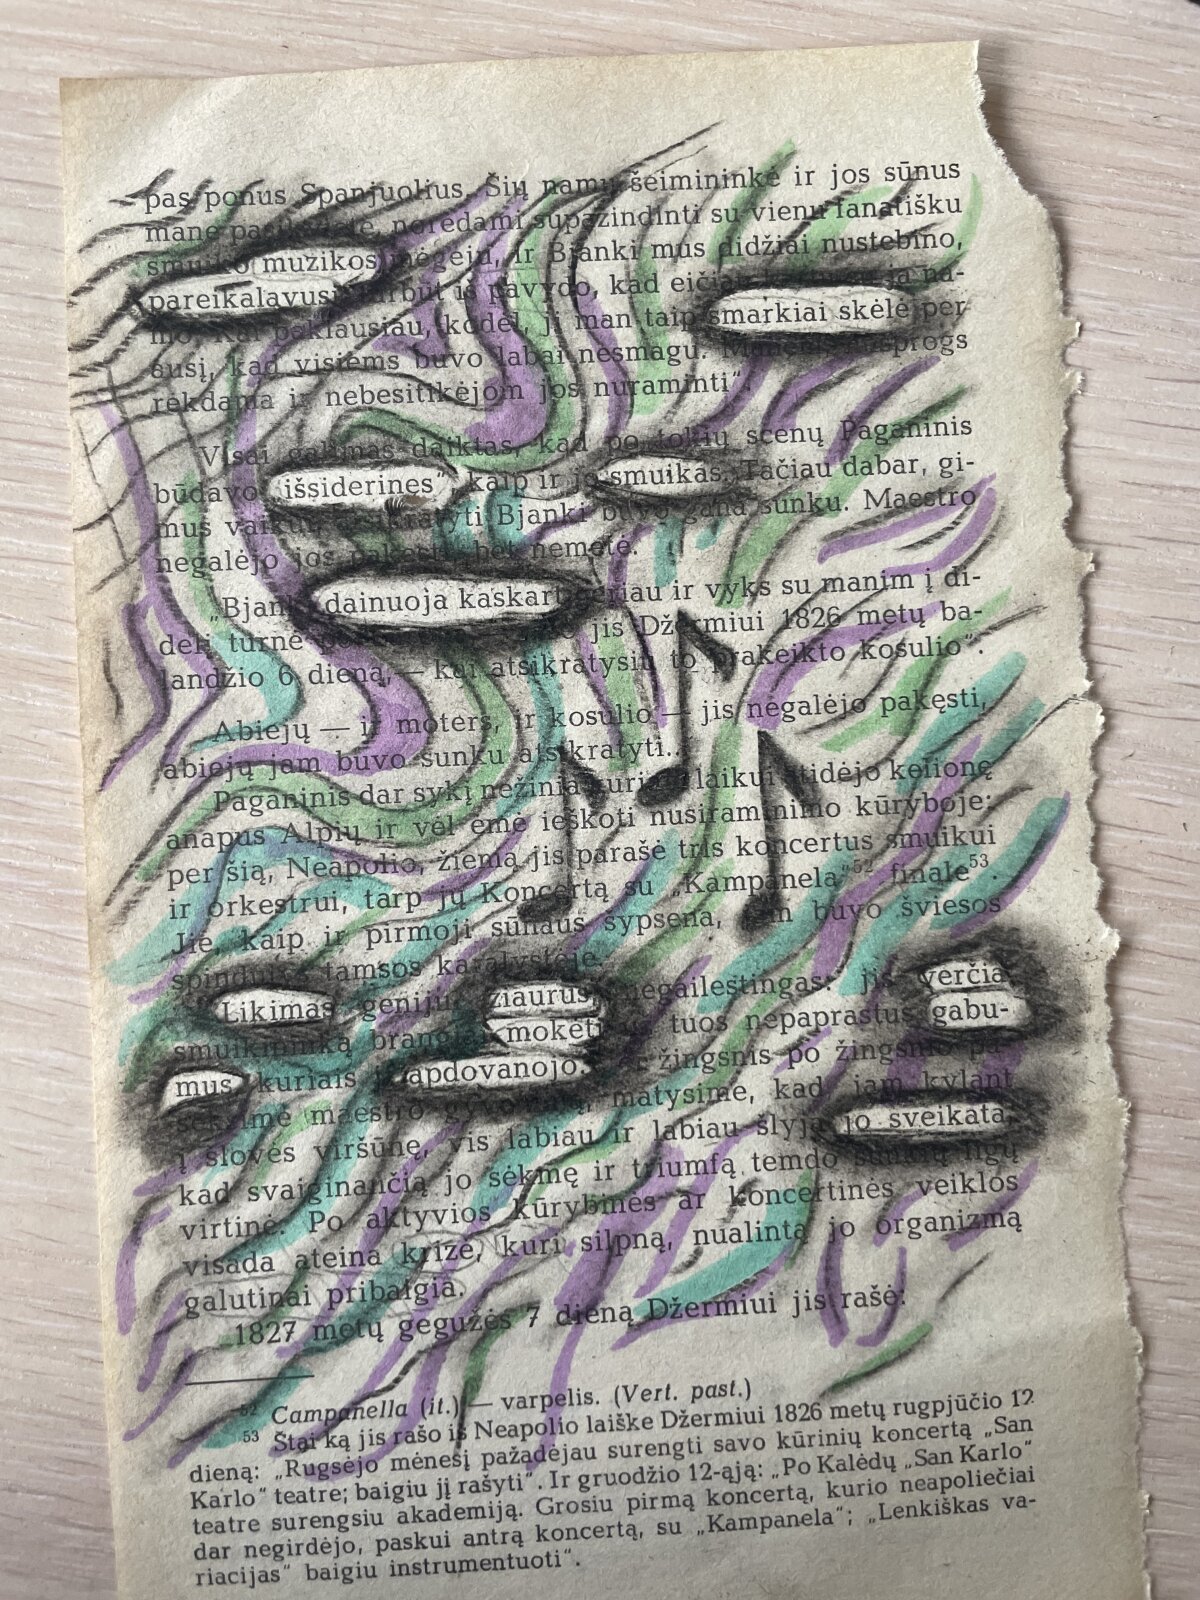 pas ponus Spanjuolius. Šių namų šeimininkė ir jos sūnus
mane norėdami supažindinti su vienu fanatišku
smuiko muzikos mėgėju, ir Bjanki mus didžiai nustebino,
pareikalavusi, turbūt iš pavydo, kad ją na-
mo. Kai paklausiau, kodėl, ji man taip smarkiai skėlė per
ausį, kad visiems buvo labai nesmagu. sprogs
rėkdama ir nebesitikėjom jos nuraminti“.
Visai galimas daiktas, kad po tokių scenų Paganinis
būdavo „išsiderinęs“ kaip ir jo smuikas. Tačiau dabar, gi-
mus vaikui, atsikratyti Bjanki buvo gana sunku. Maestro
negalėjo jos pakęsti, bet nemetė.
„Bjanki dainuoja kaskart geriau ir vyks su manim į di-
delį turnė jis Džermiui 1826 metų ba-
landžio 6 dieną, — kai atsikratysiu to prakeikto kosulio“.
Abiejų — ir moters, ir kosulio — jis negalėjo pakęsti,
abiejų jam buvo sunku atsikratyti...
Paganinis dar sykį nežinia kuriam laikui atidėjo kelionę
anapus Alpių ir vėl ėmė ieškoti nusiraminimo kūryboje:
per šią, Neapolio, žiemą jis parašė tris koncertus smuikui
ir orkestrui, tarp jų Koncertą su „Kampanela“⁵² finale⁵³.
Jie, kaip ir pirmoji sūnaus šypsena, jam buvo šviesos
spindulys tamsos karalystėje.
Likimas genijui žiaurus, negailestingas: jis verčia
smuikininką brangiai mokėti tuos nepaprastus gabu-
mus, kuriais jį apdovanojo. žingsnis po žingsnio pa-
sekdami maestro gyvenimą, matysime, kad jam kylant
į šlovės viršūnę, vis labiau ir labiau šlyja jo sveikata,
kad svaiginančią jo sėkmę ir triumfą temdo sunkių ligų
virtinė. Po aktyvios kūrybinės ar koncertinės veiklos
visada ateina krizė, kuri silpną, nualintą jo organizmą
galutinai pribaigia.
1827 metų gegužės 7 dieną Džermiui jis rašė:
⁵² Campanella (it.) — varpelis. (Vert. past.)
⁵³ Štai ką jis rašo iš Neapolio laiške Džermiui 1826 metų rugpjūčio 12
dieną: „Rugsėjo mėnesį pažadėjau surengti savo kūrinių koncertą „San
Karlo“ teatre; baigiu jį rašyti“. Ir gruodžio 12-ąją: „Po Kalėdų „San Karlo“
teatre surengsiu akademiją. Grosiu pirmą koncertą, kurio neapoliečiai
dar negirdėjo, paskui antrą koncertą, su „Kampanela“; „Lenkiškas va-
riacijas“ baigiu instrumentuoti“.